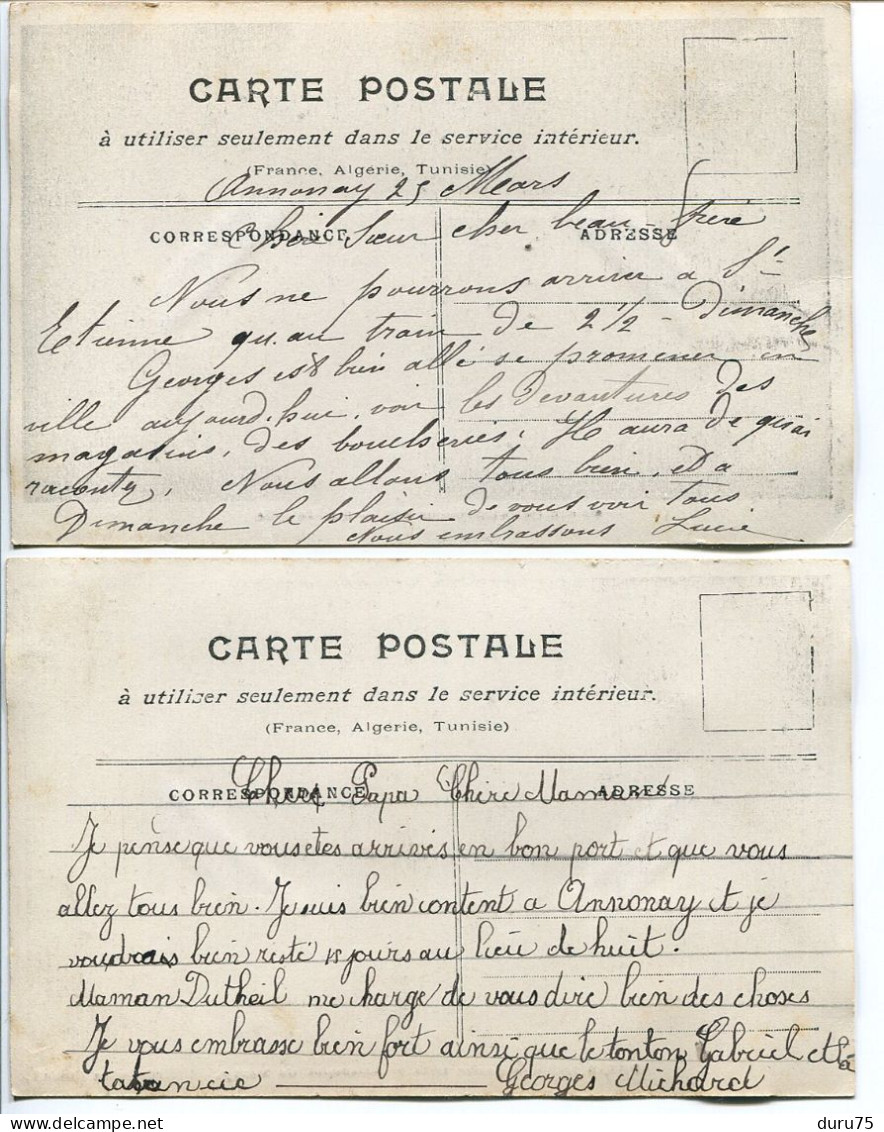 CARTE POSTALE
à utiliser seulement dans le service intérieur.
(France, Algérie, Tunisie)
Annonay 25 Mars
CORRESPONDANCE
ADRESSE
Chère Sœur cher beau-frère
Nous ne pourrons arriver a St
Etienne qu'au train de 2 1/2 - Dimanche
Georges est bien allé se promener en
ville aujourd'hui, voir les devantures des
magasins, des boucheries; Il aura de quoi
raconter, Nous allons tous bien, et a
Dimanche le plaisir de vous voir tous
Nous embrassons Lucie
CARTE POSTALE
à utiliser seulement dans le service intérieur.
(France, Algerie, Tunisie)
CORRESPONDANCE
ADRESSE
Cher Papa Chère Maman
Je pense que vous etes arrivés en bon port et que vous
allez tous bien. Je suis bien content a Annonay et je
voudrais bien resté 15 jours au lieu de huit.
Maman Dutheil me charge de vous dire bien des choses
Je vous embrasse bien fort ainsi que le tonton Gabriel et la
tata
Georges Michard
duru75